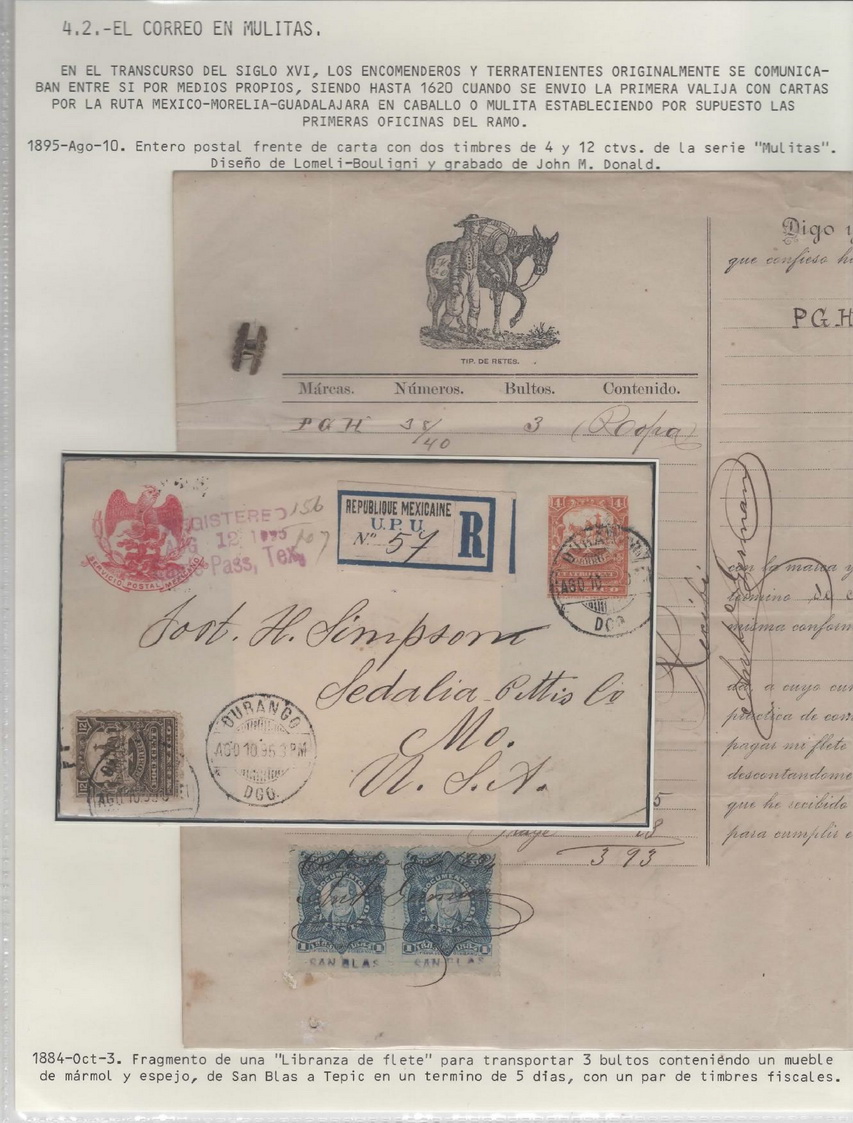 4.2.-EL CORREO EN MULITAS.
EN EL TRANSCURSO DEL SIGLO XVI, LOS ENCOMENDEROS Y TERRATENIENTES ORIGINALMENTE SE COMUNICA-
BAN ENTRE SI POR MEDIOS PROPIOS, SIENDO HASTA 1620 CUANDO SE ENVIO LA PRIMERA VALIJA CON CARTAS
POR LA RUTA MEXICO-MORELIA-GUADALAJARA EN CABALLO O MULITA ESTABLECIENDO POR SUPUESTO LAS
PRIMERAS OFICINAS DEL RAMO.
1895-Ago-10. Entero postal frente de carta con dos timbres de 4 y 12 ctvs. de la serie "Mulitas".
Diseño de Lomeli-Bouligni y grabado de John M. Donald.
Digo y
que confieso
PGH
TIP. DE RETES.
Márcas. Números. Bultos. Contenido.
PGH 38/40 3 (Ropa)
SERVICIO POSTAL MEXICANO
GISTERED
12 1895
Pass, Tex.
156
107
REPUBLIQUE MEXICAINE
U.P.U.
Nº 57
R
4
DURANGO
AGO 10
DGO.
Jost. H. Simpson
Sedalia Pettis Co
Mo.
U.S.A.
12
AGO 10
DURANGO
AGO 10 95 3 PM
DGO.
Recibí
con la marca y
termino de
misma conform
da, a cuyo cum
práctica de com
pagar mi flete
descontandome
que he recibido
para cumplir
5
18
3 93
DOCUMENTOS
DOCUMENTOS
SAN BLAS SAN BLAS
1884-Oct-3. Fragmento de una "Libranza de flete" para transportar 3 bultos conteniéndo un mueble
de mármol y espejo, de San Blas a Tepic en un termino de 5 días, con un par de timbres fiscales.